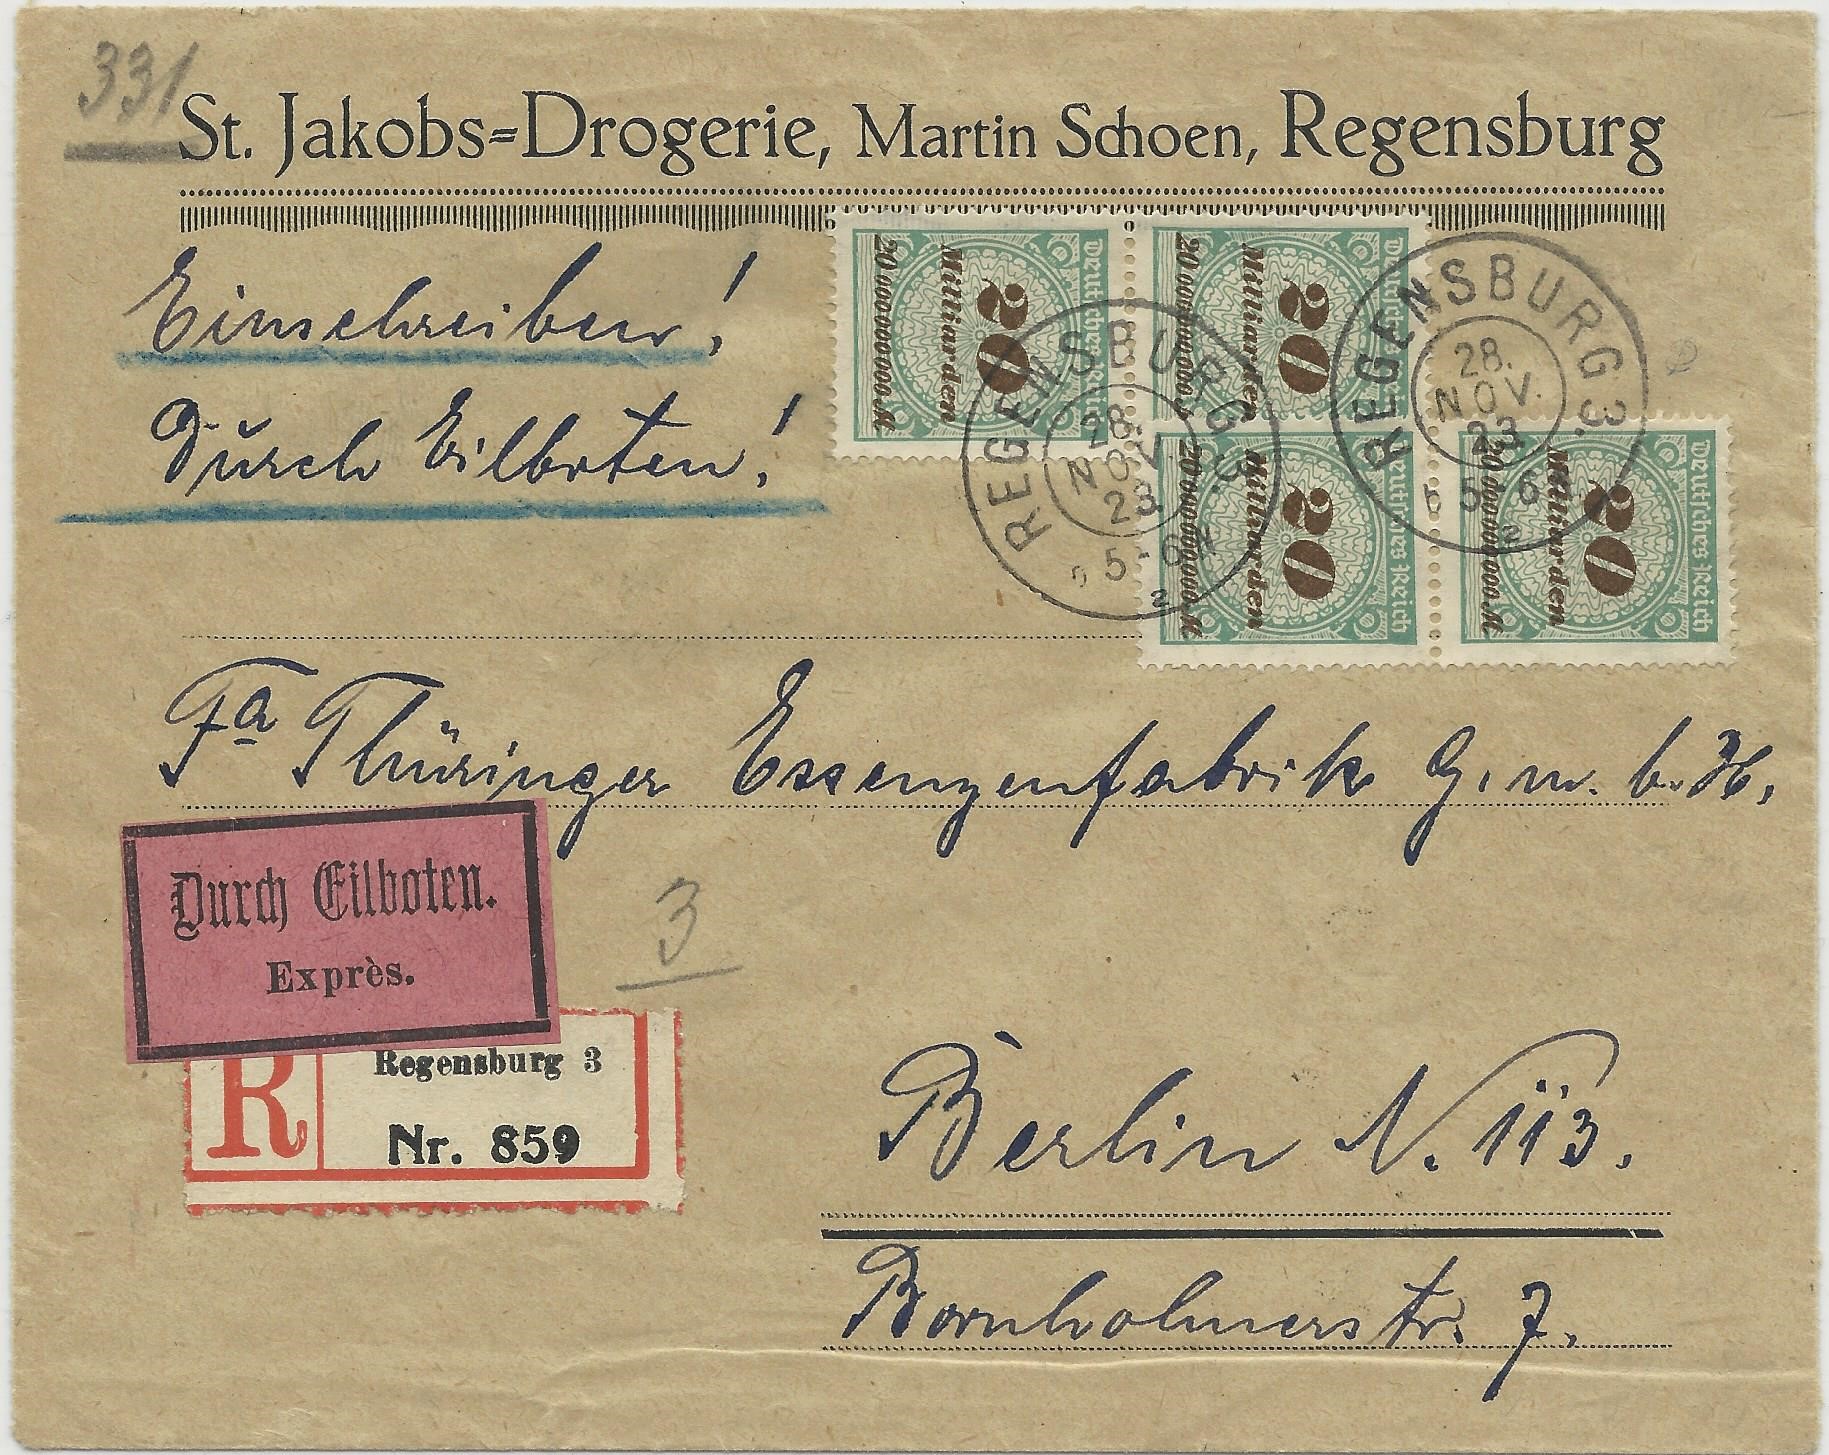 331
St. Jakobs=Drogerie, Martin Schoen, Regensburg
Einschreiben!
Durch Eilboten!
Deutsches Reich
20
Milliarden
20 000 000 000 M
Deutsches Reich
20
Milliarden
20 000 000 000 M
Deutsches Reich
20
Milliarden
20 000 000 000 M
Deutsches Reich
20
Milliarden
20 000 000 000 M
REGENSBURG 3.
28.
NOV.
23
5-6 N
2
REGENSBURG 3.
28.
NOV.
23
5-6 N
2
Fa Thüringer Essenzenfabrik G. m. b. H.
Durch Eilboten.
Exprès.
3
R
Regensburg 3
Nr. 859
Berlin N. 113.
Bornholmerstr. 7.